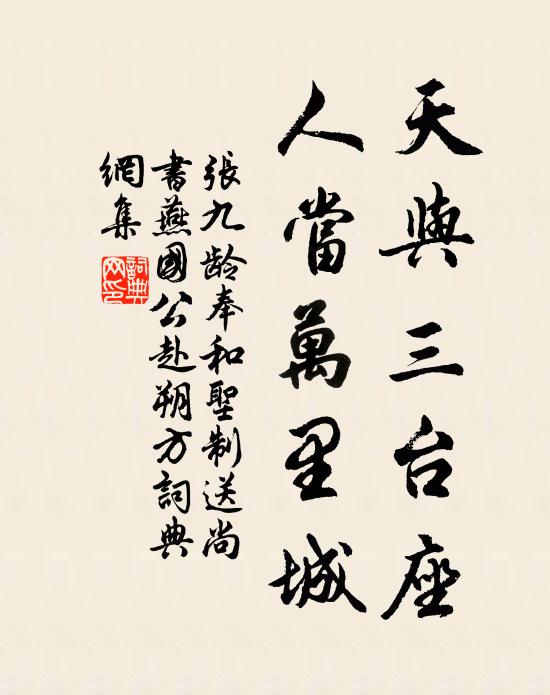 天與三台座
人當萬里城
張九龄奉和聖制送尚
書燕國公赴朔方詞典
網集
詞典網印